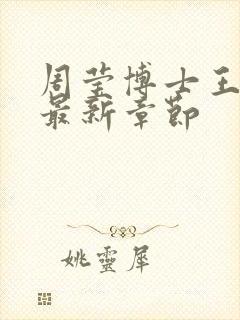 周莹博士王
最新章节
姚靈犀